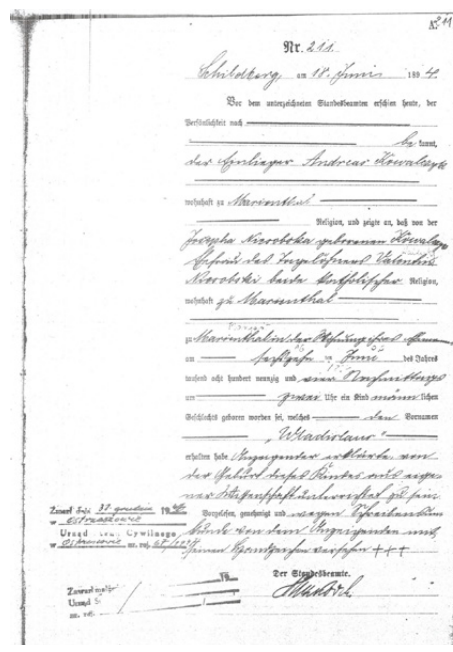 211
Nr. 211.
Schildberg, am 18. Juni 1894.
Vor dem unterzeichneten Standesbeamten erschien heute, der
Persönlichkeit nach
be kannt,
der Einlieger Andreas Kowalczyk
wohnhaft zu Marienthal
Religion, und zeigte an, daß von der
Josepha geborenen
Ehefrau des Tagelöhners Valentin
beide katholischer Religion,
wohnhaft zu Marienthal
zu Marienthal in der Wohnung ihres
am sechzehn ten Juni des Jahres
tausend acht hundert neunzig und vier Nachmittags
um zwei Uhr ein Kind männ lichen
Geschlechts geboren worden sei, welches den Vornamen
„Wladislaus"
erhalten habe Anzeigender erklärte, von
der Geburt dieses Kindes aus eige-
ner Wissenschaft unterrichtet zu sein
Vorgelesen, genehmigt und wegen Schreibensun-
kunde von dem Anzeigenden mit
seinen Handzeichen versehen +++
Der Standesbeamte.
Zmarł dnia 31. grudnia 19
w
Urząd Stanu Cywilnego
w nr. rej.
19
Zawarł małż.
Urząd S
nr. rej.